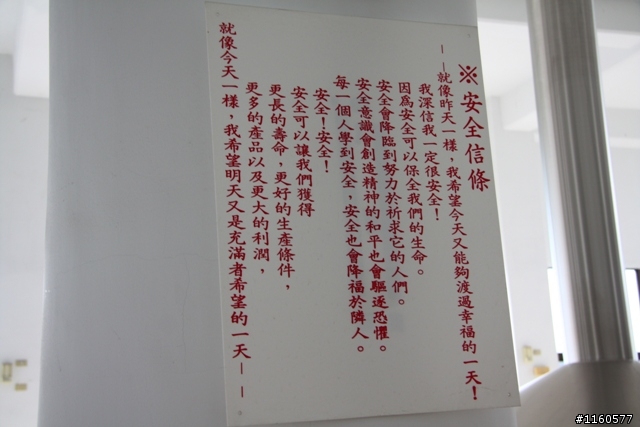 ※安全信條
——就像昨天一樣，我希望今天又能夠渡過幸福的一天！
我深信我一定很安全！
因為安全可以保全我們的生命。
安全會降臨到努力於祈求它的人們。
安全意識會創造精神的和平也會驅逐恐懼。
每一個人學到安全，安全也會降福於隣人。
安全！安全！
安全可以讓我們獲得
更長的壽命，更好的生產條件，
更多的產品以及更大的利潤，
就像今天一樣，我希望明天又是充滿者希望的一天——
#1160577